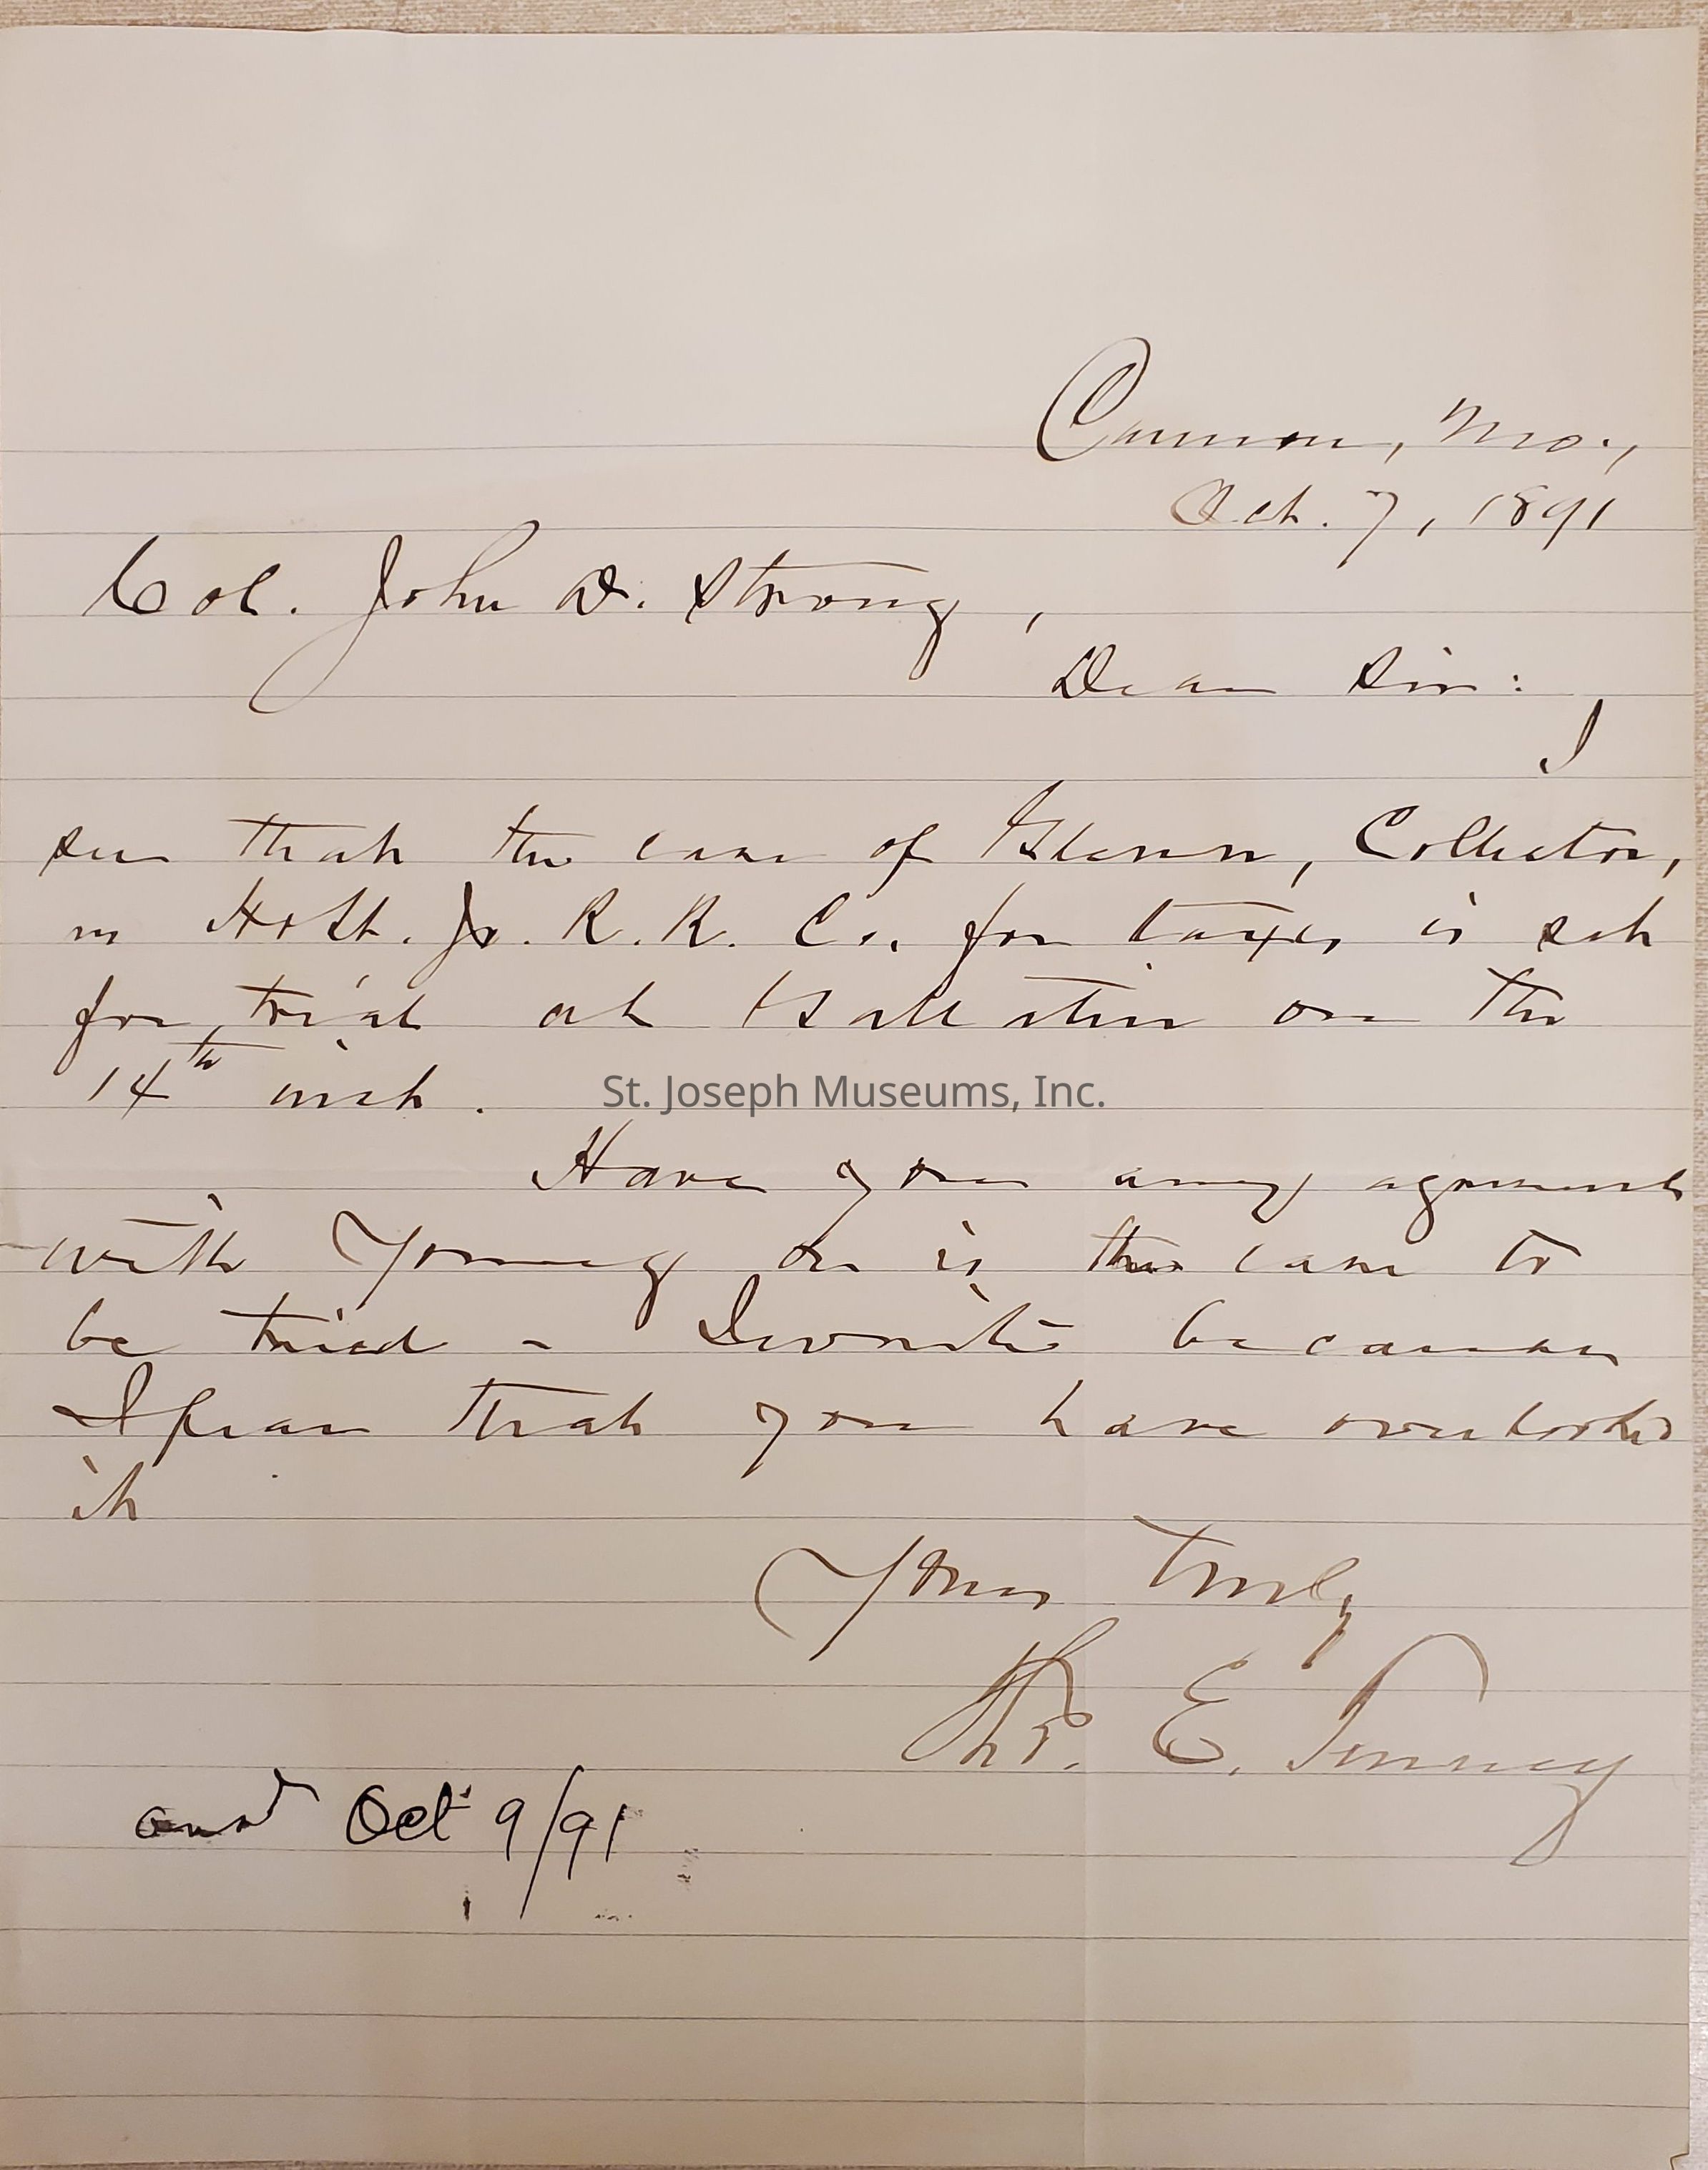 Cameron, Mo.,
Oct. 7, 1891
Col. John D. Strong,
Dear Sir:
I
see that the case of Glenn, Collector,
vs H & St. Jo. R. R. Co. for taxes is set
for trial at Gallatin on the
14th inst.
St. Joseph Museums, Inc.
Have you any agreement
with Young or is this case to
be tried - I write because
I fear that you have overlooked
it
Yours truly
E. Tenney
ansd Oct 9/91